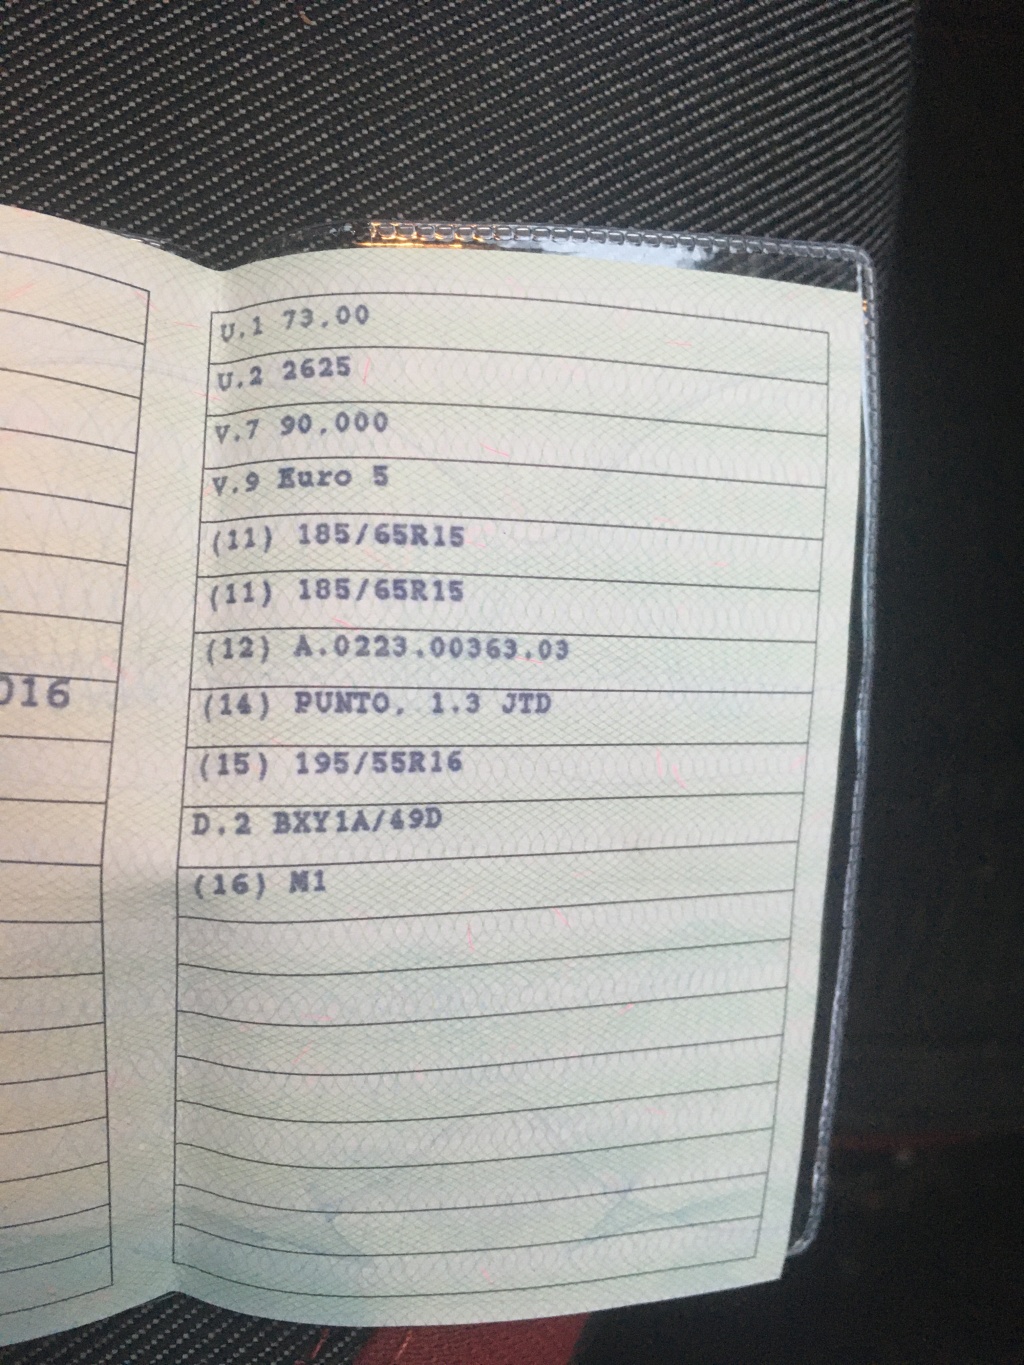 016
U.1 73.00
U.2 2625
V.7 90.000
V.9 Euro 5
(11) 185/65R15
(11) 185/65R15
(12) A.0223.00363.03
(14) PUNTO, 1.3 JTD
(15) 195/55R16
D.2 BXY1A/49D
(16) M1